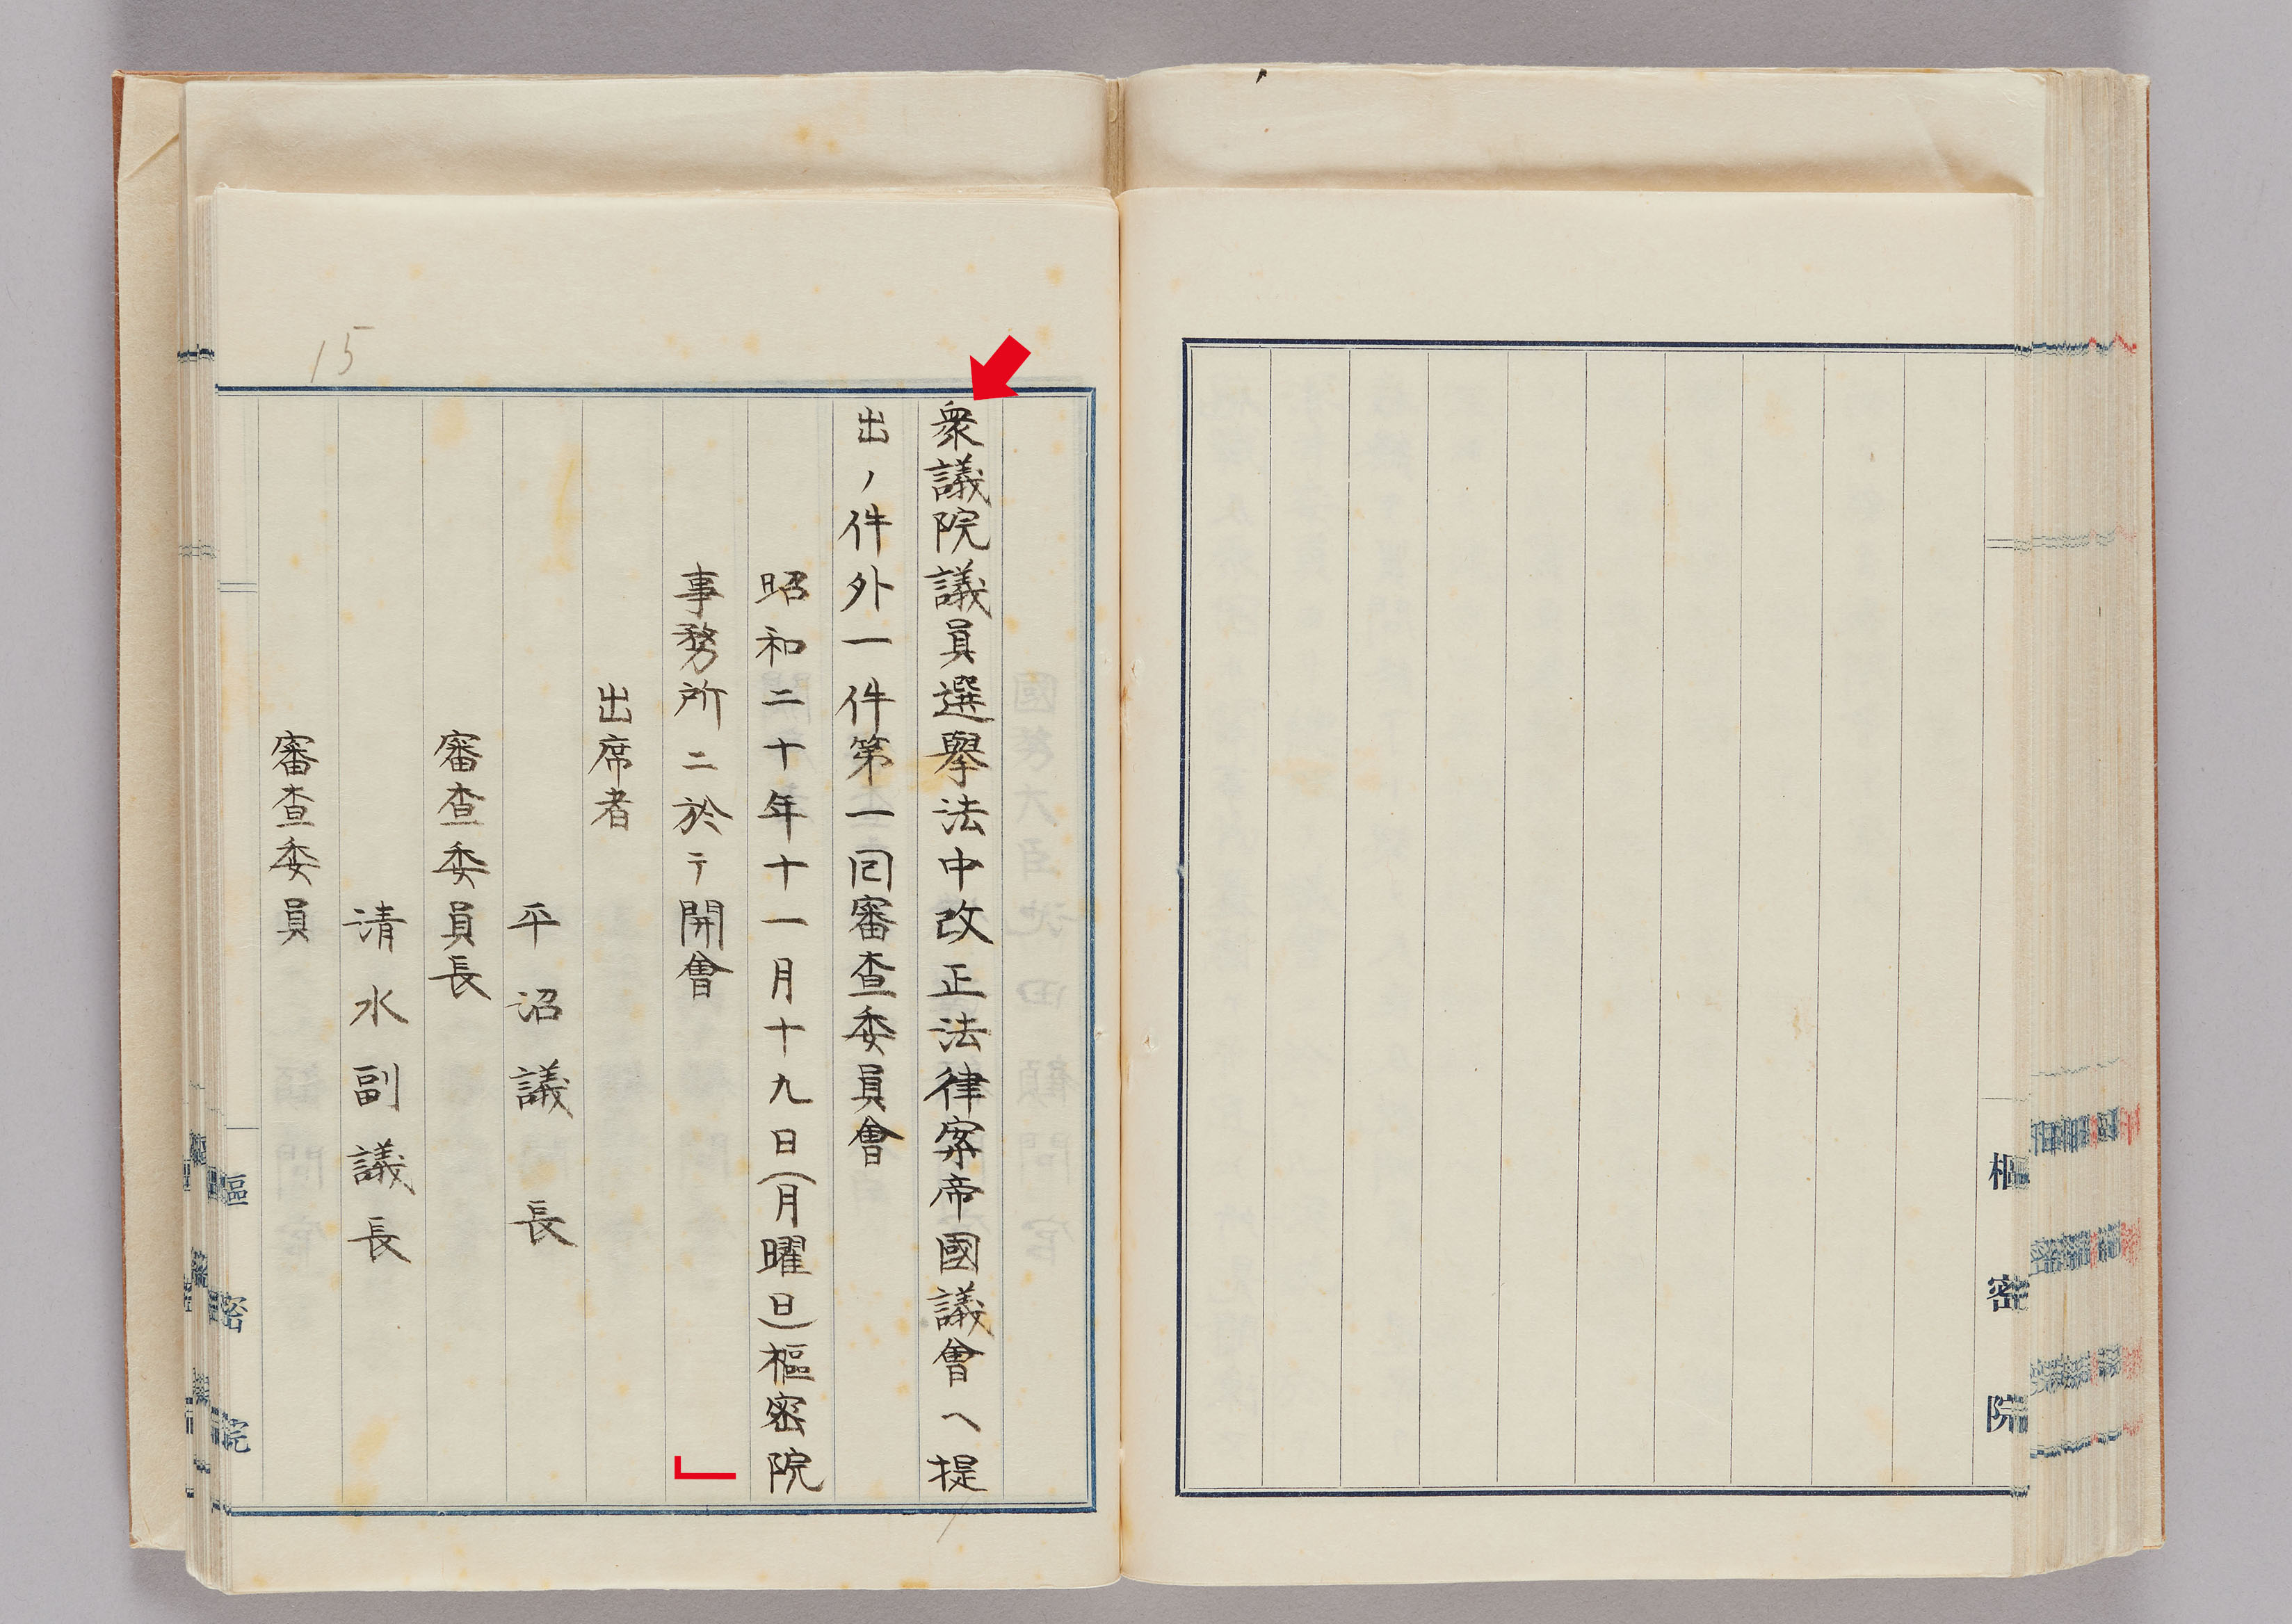 樞密院
衆議院議員選擧法中改正法律案帝國議會ヘ提
出ノ件外一件第一囘審査委員會
昭和二十年十一月十九日(月曜日)樞密院
事務所ニ於テ開會
出席者
平沼議長
審査委員長
清水副議長
審査委員
15
樞密院